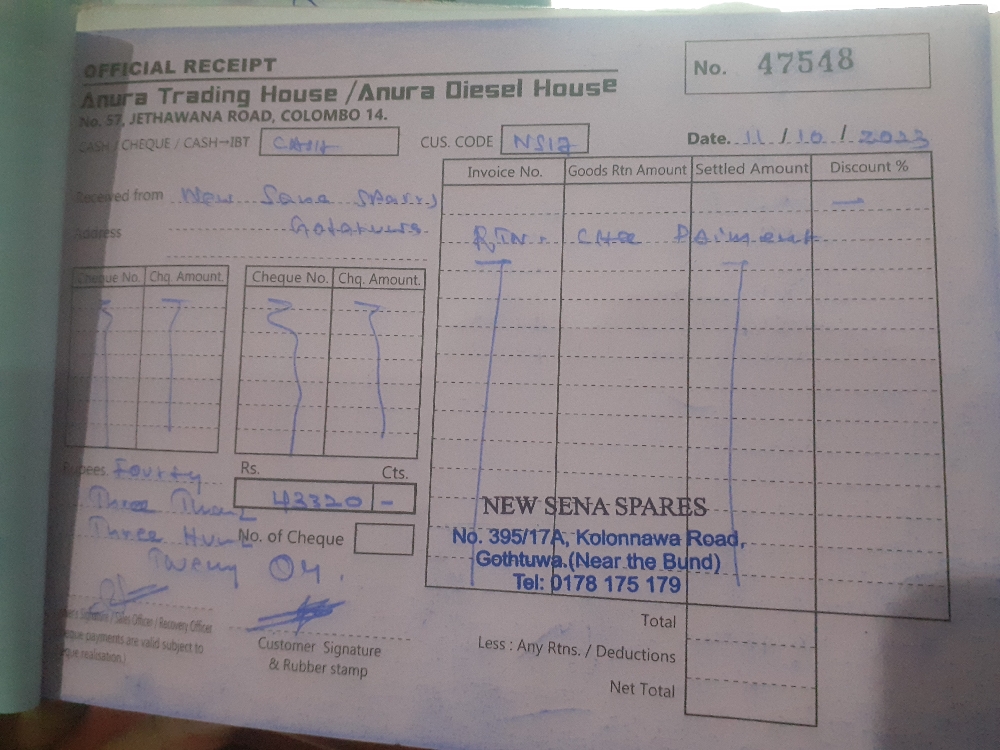 OFFICIAL RECEIPT
No. 47548
Anura Trading House /Anura Diesel House
No. 57, JETHAWANA ROAD, COLOMBO 14.
CASH / CHEQUE / CASH-IBT CASH CUS. CODE NS17 Date. 11 / 10 / 2023
Invoice No. Goods Rtn Amount Settled Amount Discount %
Received from New Sena
Address
RTN. CHQ Paiment
Cheque No. Chq. Amount. Cheque No. Chq. Amount.
Rupees. Fourty
Three
Three
Rs. Cts.
43320 -
No. of Cheque
NEW SENA SPARES
No. 395/17A, Kolonnawa Road,
Gothtuwa.(Near the Bund)
Tel: 0178 175 179
Signature / Sales Officer / Recovery Officer
payments are valid subject to
realisation.)
Customer Signature
& Rubber stamp
Total
Less : Any Rtns. / Deductions
Net Total